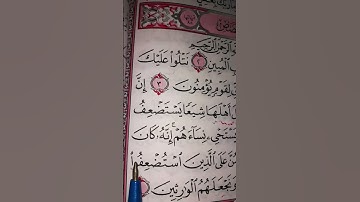 ٱلرَّحْمَٰنِ ٱلرَّحِيمِ
ٱلْمُبِينِ ٢ نَتْلُوا۟ عَلَيْكَ
لِقَوْمٍ يُؤْمِنُونَ ٣ إِنَّ
أَهْلَهَا شِيَعًا يَسْتَضْعِفُ
يَسْتَحْىِۦ نِسَآءَهُمْ ۚ إِنَّهُۥ كَانَ
عَلَى ٱلَّذِينَ ٱسْتُضْعِفُوا۟
وَنَجْعَلَهُمُ ٱلْوَٰرِثِينَ